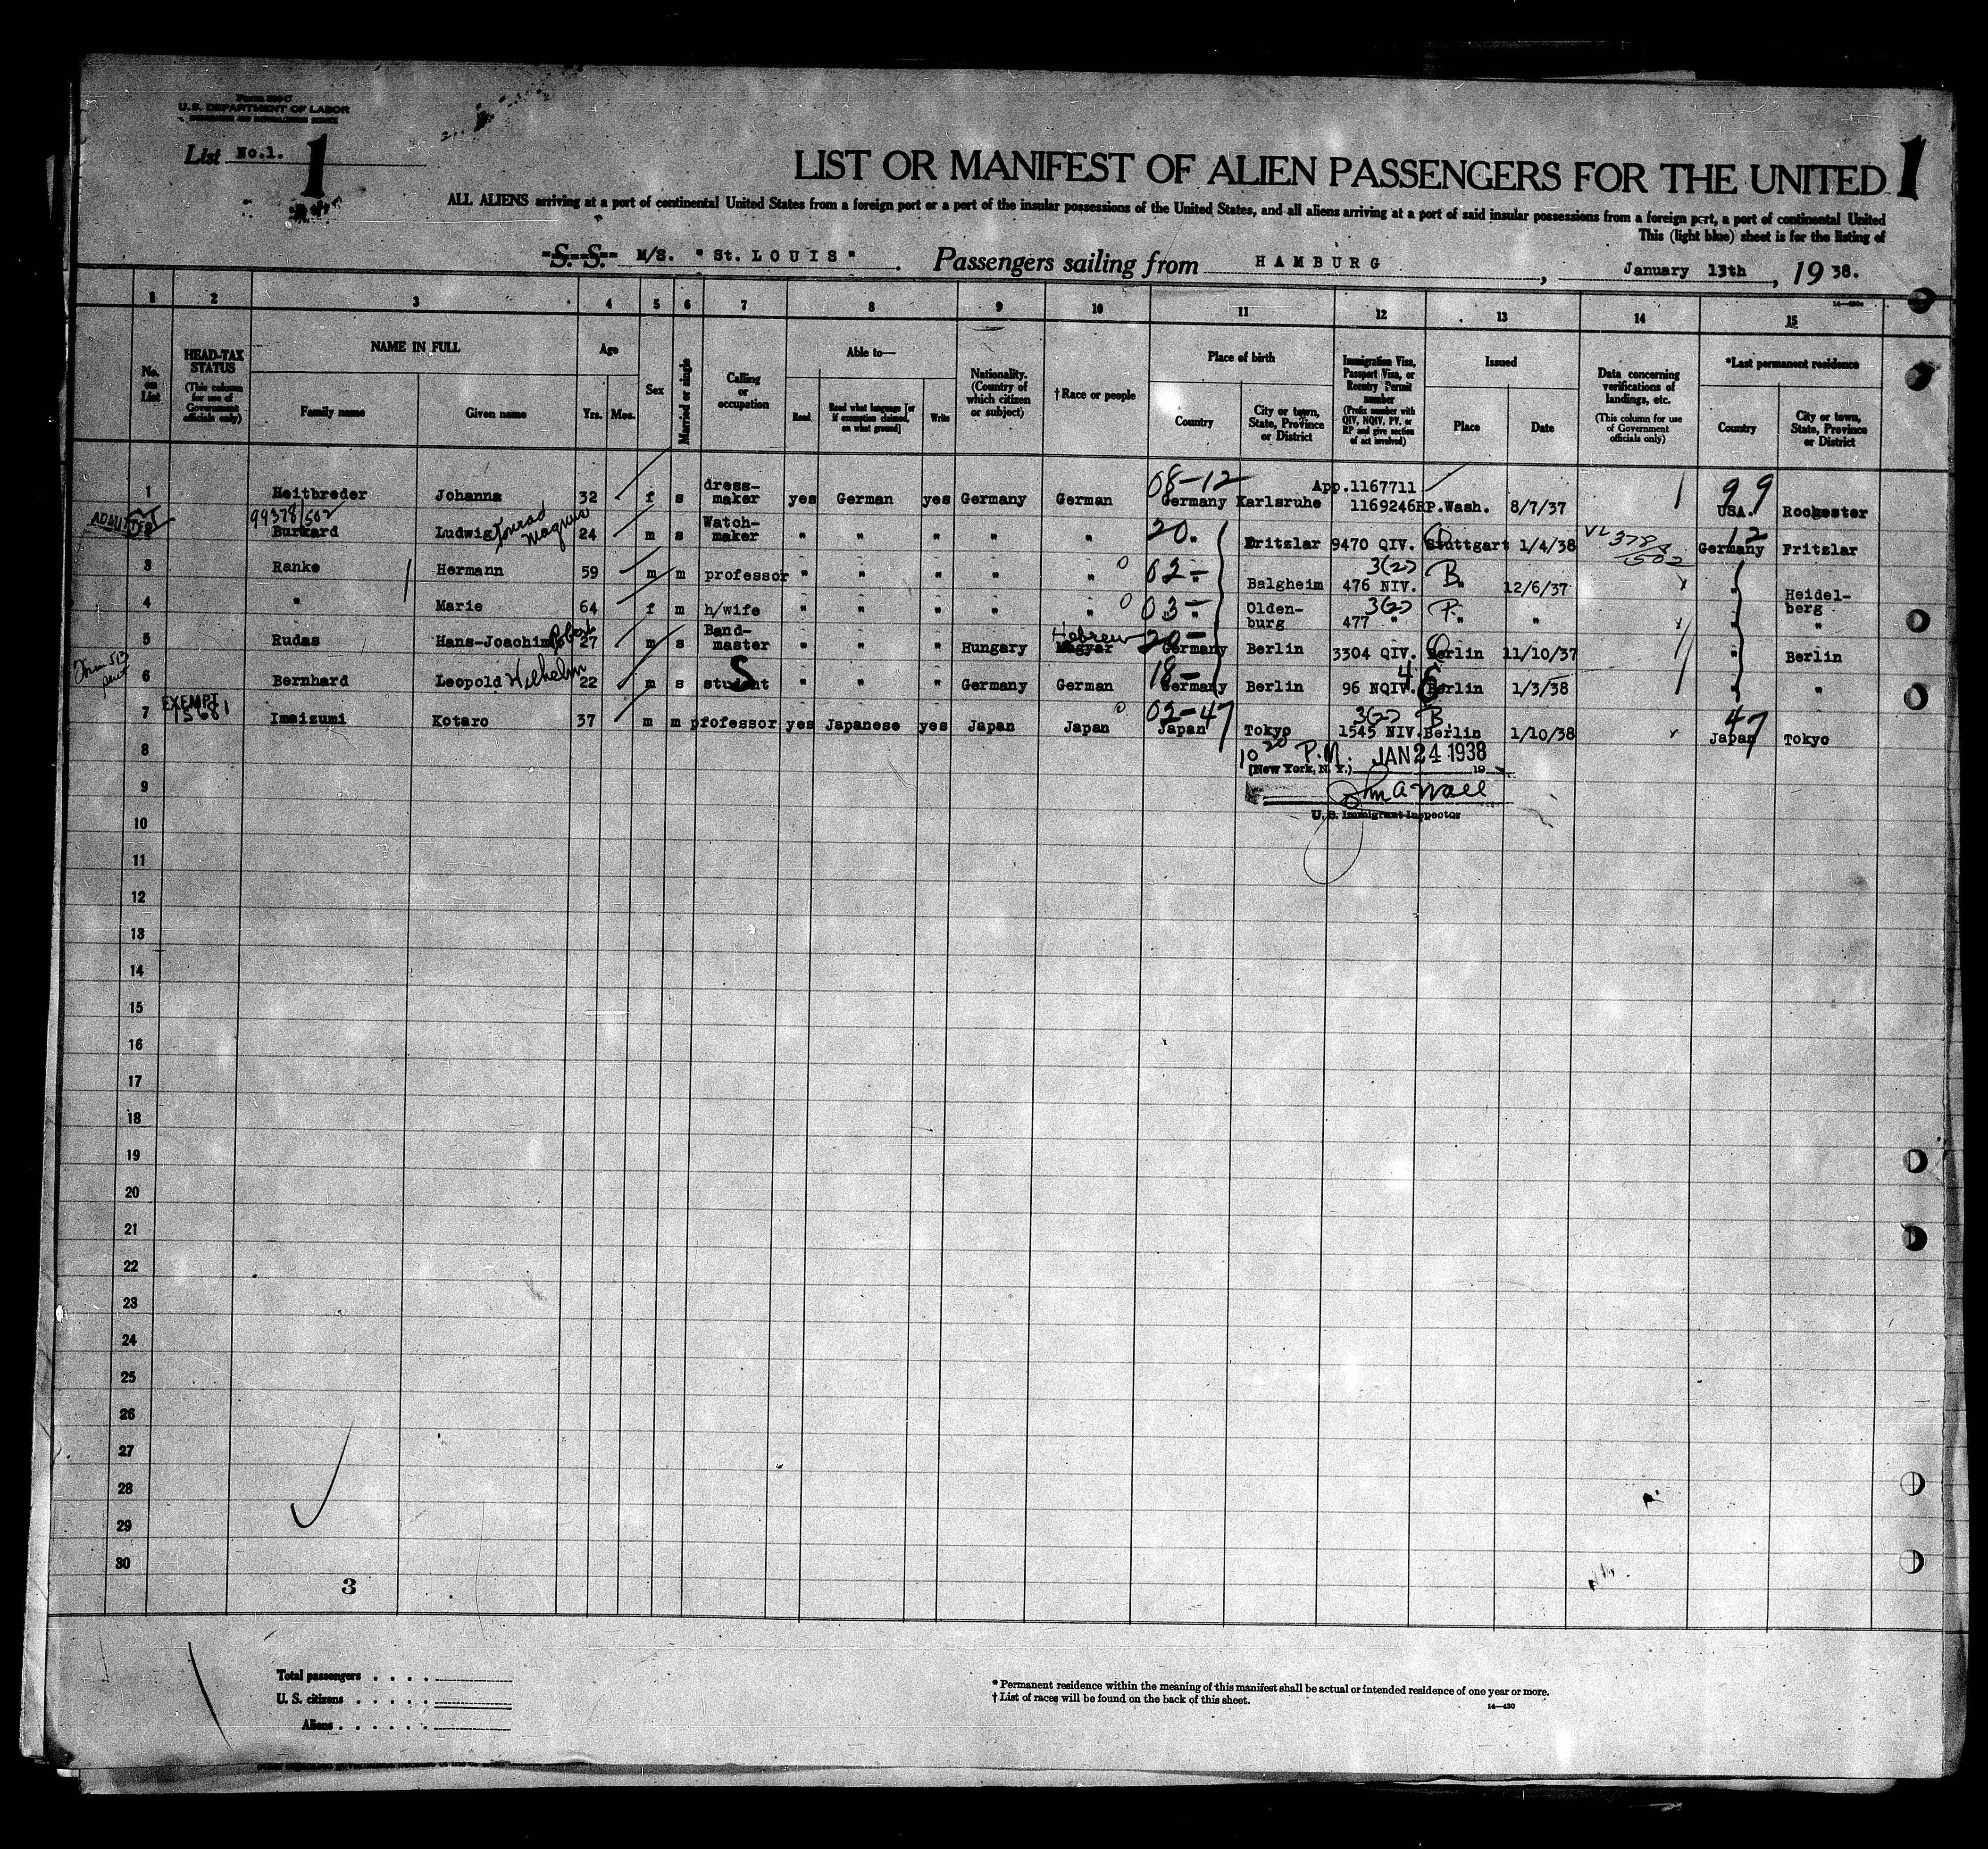 U.S. DEPARTMENT OF LABOR
List No.1.
1
LIST OR MANIFEST OF ALIEN PASSENGERS FOR THE UNITED
1
ALL ALIENS arriving at a port of continental United States from a foreign port or a port of the insular possessions of the United States, and all aliens arriving at a port of said insular possessions from a foreign port, a port of continental United
This (light blue) sheet is for the listing of
S. S. M/S. "St. LOUIS". Passengers sailing from HAMBURG, January 13th, 19 38.
1 2 3 4 5 6 7 8 9 10 11 12 13 14 15
No. on List
HEAD-TAX STATUS (This column for use of Government officials only)
NAME IN FULL
Family name
Given name
Age
Yrs.
Mos.
Sex
Married or single
Calling or occupation
Able to—
Read
Read what language [or if exemption claimed, on what ground]
Write
Nationality. (Country of which citizen or subject)
†Race or people
Place of birth
Country
City or town, State, Province or District
Immigration Visa, Passport Visa, or Reentry Permit number (Prefix number with QIV, NQIV, PV, or RP and give section of act involved)
Issued
Place
Date
Data concerning verifications of landings, etc. (This column for use of Government officials only)
*Last permanent residence
Country
City or town, State, Province or District
1 Heitbreder Johanna 32 f s dress-maker yes German yes Germany German 08-12 Germany Karlsruhe App.1167711 1169246RP. Wash. 8/7/37 99 USA. Rochester
ADMITTED 99378/502 Burkard Ludwig Konrad Magnus 24 m s Watch-maker " " " " " 20 " Fritzlar 9470 QIV. Stuttgart 1/4/38 VL 378/502 12 Germany Fritzlar
3 Ranke Hermann 59 m m professor " " " " " 02- " Balgheim 3(2) 476 NIV. B. 12/6/37 " Heidel-berg
4 " Marie 64 f m h/wife " " " " " 03- " Olden-burg 3(2) 477 " " " " "
5 Rudas Hans-Joachim Robert 27 m s Band-master " " " Hungary Magyar Hebrew 20- Germany Berlin 3304 QIV. Berlin 11/10/37 " Berlin
6 Bernhard Leopold Wilhelm 22 m s student S " " " Germany German 18- Germany Berlin 96 NQIV. 4 E Berlin 1/3/38 " "
7 EXEMPT 15681 Imaizumi Kotaro 37 m m professor yes Japanese yes Japan Japan 02-47 Japan Tokyo 3(2) 1545 NIV. B. Berlin 1/10/38 47 Japan Tokyo
8
10 20 P.M. JAN 24 1938
[New York, N. Y.) 19
9
John A Wall
U. S. Immigrant Inspector
10
11
12
13
14
15
16
17
18
19
20
21
22
23
24
25
26
27
28
29
30
3
Total passengers . . . .
U. S. citizens . . . . .
Aliens . . . . . .
* Permanent residence within the meaning of this manifest shall be actual or intended residence of one year or more.
† List of races will be found on the back of this sheet.
14—430